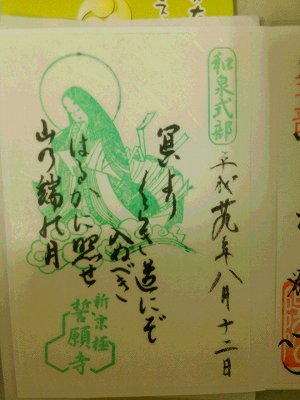 和泉式部
平成廿九年八月十二日
冥より
くらき道にぞ
入ぬべき
はるかに照せ
山乃端の月
新京極
誓願寺